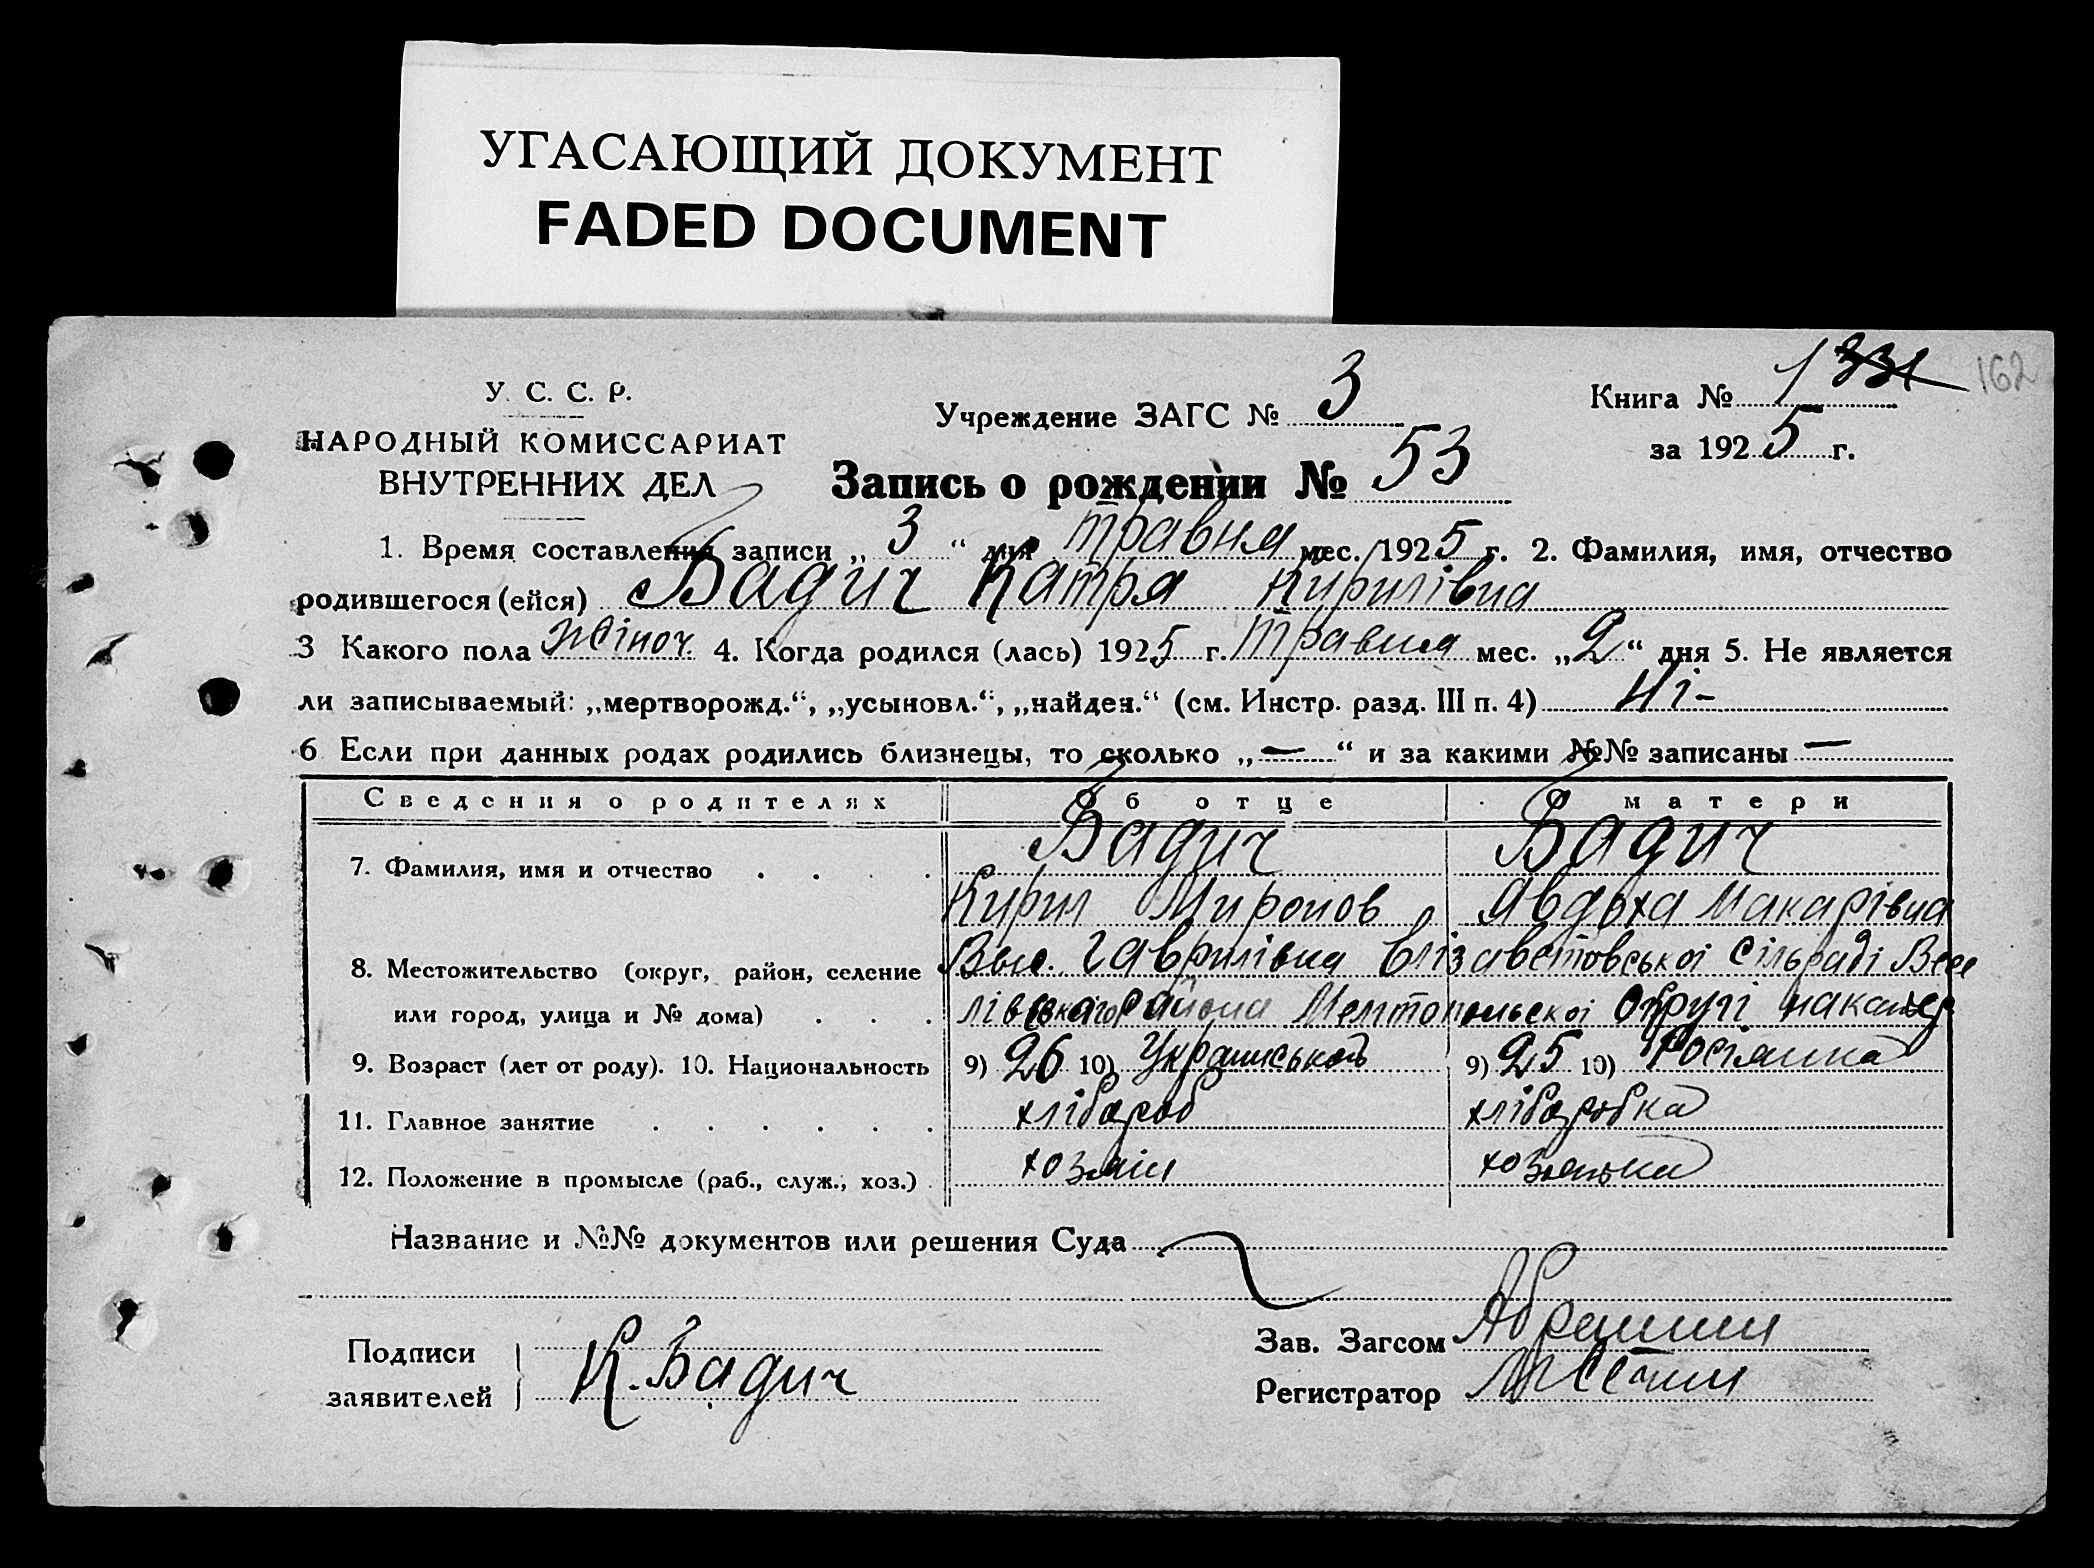 УГАСАЮЩИЙ ДОКУМЕНТ
FADED DOCUMENT
162
У. С. С. Р.
НАРОДНЫЙ КОМИССАРИАТ
ВНУТРЕННИХ ДЕЛ
Учреждение ЗАГС № 3
Книга № 1 331
за 1925 г.
Запись о рождении № 53
1. Время составления записи „ 3 “ дня травня мес. 1925 г. 2. Фамилия, имя, отчество
родившегося (ейся) Бадич Катря Кирилівна
3 Какого пола жіноч. 4. Когда родился (лась) 1925 г. травня мес. „2“ дня 5. Не является
ли записываемый: „мертворожд.“, „усыновл.“, „найден.“ (см. Инстр. разд. III п. 4) Ні-
6 Если при данных родах родились близнецы, то сколько „—“ и за какими №№ записаны —
Сведения о родителях Об отце О матери
7. Фамилия, имя и отчество . . . . Бадич Бадич
Кирил Миронов Явдоха Макарівна
8. Местожительство (округ, район, селение Вис. Гаврилівка Єлізаветовської сільраді Весе
или город, улица и № дома) . . . лівського района Мелітопольскої Округі
9. Возраст (лет от роду). 10. Национальность 9) 26 10) 9) 25 10) Росіянка
11. Главное занятие . . . . . . хлібороб хліборобка
12. Положение в промысле (раб., служ., хоз.) . хозяін хозяйка
Название и №№ документов или решения Суда
Подписи
заявителей } К. Бадич
Зав. Загсом
Регистратор